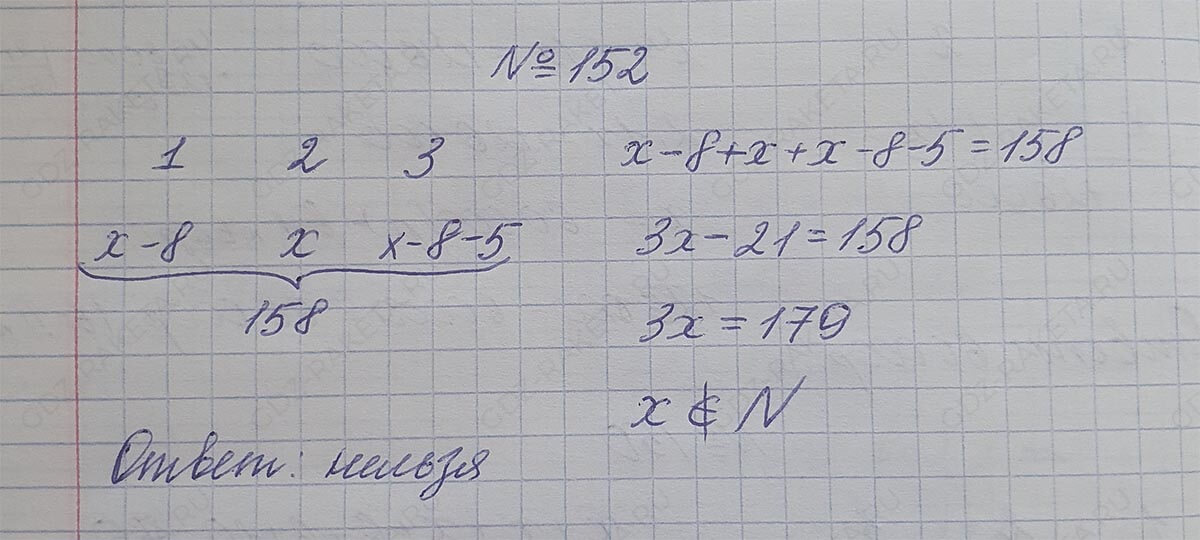 № 152
1 2 3
x-8 x x-8-5
158
x-8+x+x-8-5=158
3x-21=158
3x=179
x ∉ N
Ответ: нельзя